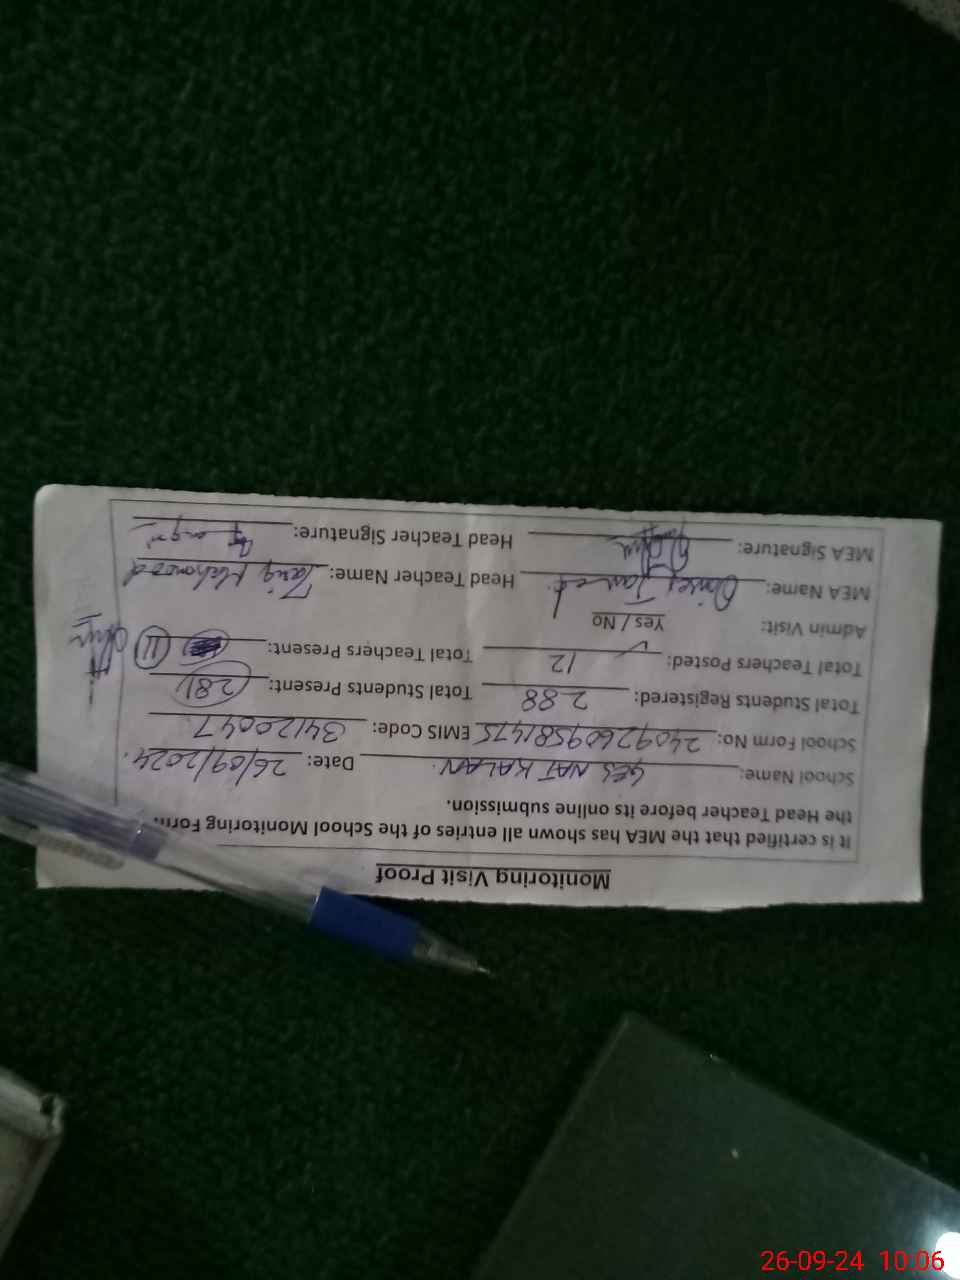 Monitoring Visit Proof
It is certified that the MEA has shown all entries of the School Monitoring Form
the Head Teacher before its online submission.
School Name: GES NAT KALAN. Date: 26/09/2024.
School Form No: 24092609581475 EMIS Code: 34120047
Total Students Registered: 288 Total Students Present: 281
Total Teachers Posted: 12 Total Teachers Present: 11
Admin Visit: Yes / No
MEA Name: Head Teacher Name: Tariq Mehmood
MEA Signature: Head Teacher Signature:
26-09-24 10:06